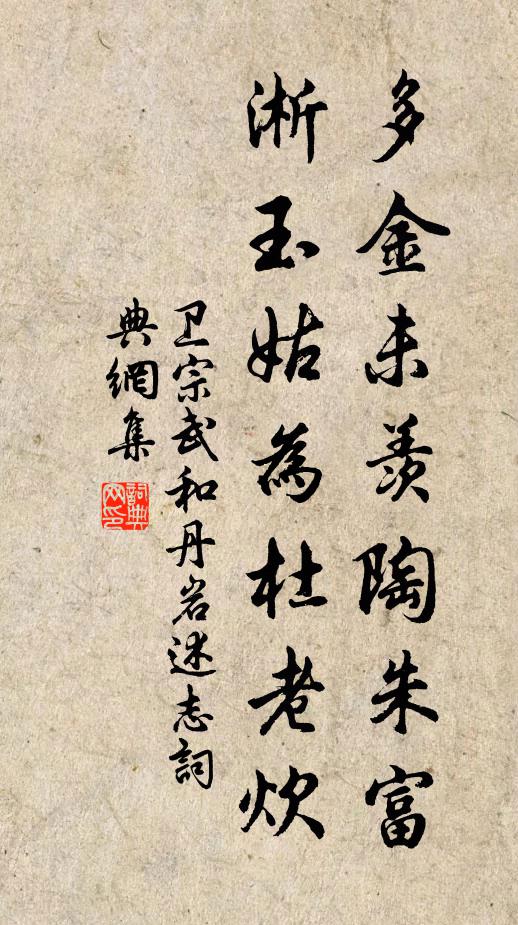 多金未羨陶朱富
淅玉姑為杜老炊
卫宗武和丹岩述志詞
典網集
詞典
网印